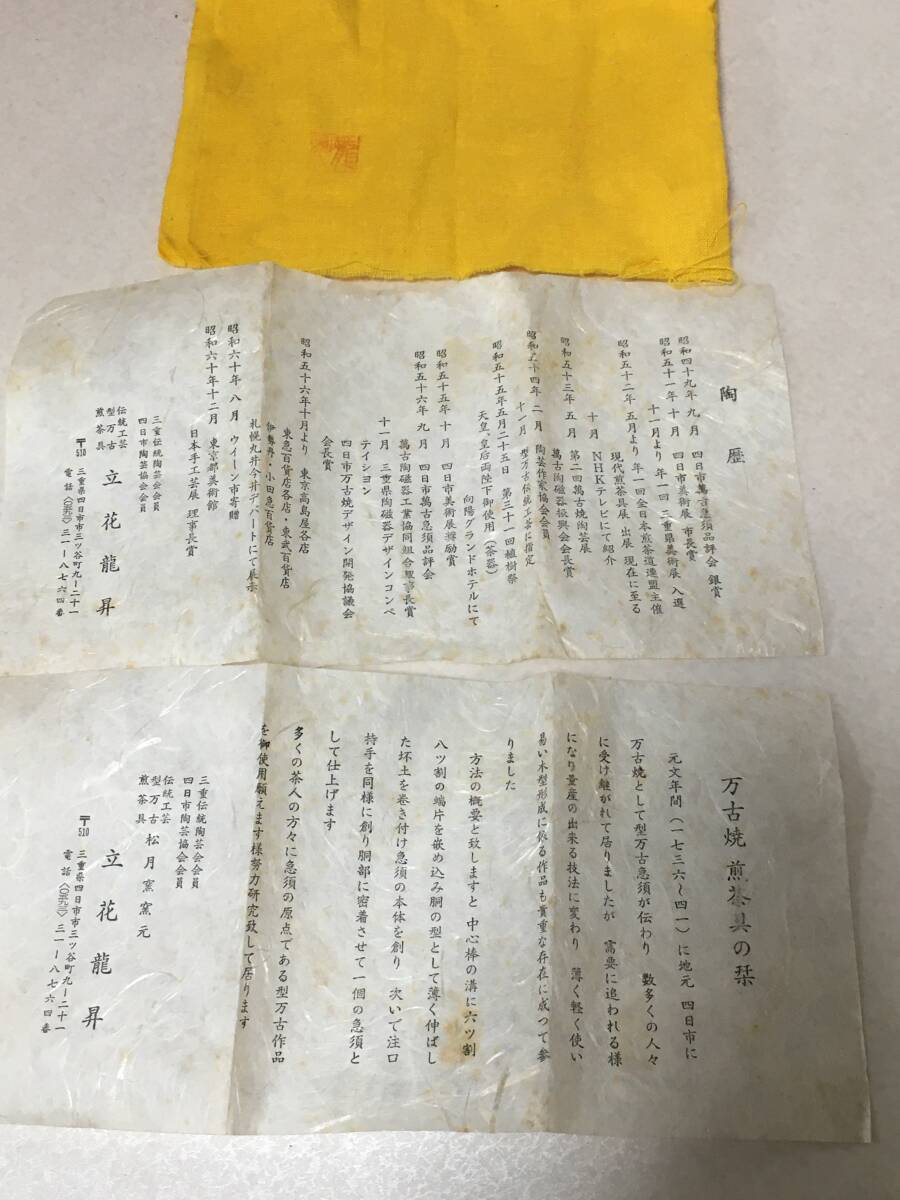 陶歴
昭和四十九年 九月 四日市萬古急須品評会 銀賞
昭和五十一年 十月 四日市美術展 市長賞
十一月より 年一回 三重県美術展 入選
昭和五十二年 五月より 年一回全日本煎茶道連盟主催
現代煎茶具展 出展 現在に至る
十月 NHKテレビにて紹介
昭和五十三年 五月 第二四萬古焼陶芸展
萬古陶磁器振興会会長賞
昭和五十四年 二月 陶芸作家協会会員
十一月 型万古伝統工芸に指定
昭和五十五年五月二十五日 第三十一回植樹祭
天皇、皇后両陛下御使用(茶器)
向陽グランドホテルにて
昭和五十五年 十月 四日市美術展奨励賞
昭和五十六年 九月 四日市萬古急須品評会
萬古陶磁器工業協同組合理事長賞
十一月 三重県陶磁器デザインコンペ
テイシヨン
四日市万古焼デザイン開発協議会
会長賞
昭和五十六年十月より 東京高島屋各店
東急百貨店各店・東武百貨店
伊勢丹・小田急百貨店
札幌丸井今井デパートにて展示
昭和六十年 八月 ウイーン市寄贈
昭和六十年十二月 東京都美術館
日本手工芸展 理事長賞
三重伝統陶芸会会員
四日市陶芸協会会員
伝統工芸
型万古
煎茶具
立花龍昇
〒510 三重県四日市市三ツ谷町九ー二十一
電話〈〇五九三〉三一ー八七六四番
万古焼 煎茶具の栞
元文年間(一七三六〜四一)に地元 四日市に
万古焼として型万古急須が伝わり 数多くの人々
に受け継がれて居りましたが 需要に追われる様
になり量産の出来る技法に変わり 薄く軽く使い
易い木型形成に依る作品も貴重な存在に成つて参
りました
方法の概要と致しますと 中心棒の溝に六ツ割
八ツ割の端片を嵌め込み胴の型として薄く伸ばし
た坏土を巻き付け急須の本体を創り 次いで注口
持手を同様に創り胴部に密着させて一個の急須と
して仕上げます
多くの茶人の方々に急須の原点である型万古作品
を御使用願えます様努力研究致して居ります
三重伝統陶芸会会員
四日市陶芸協会会員
伝統工芸
型万古
煎茶具
松月窯窯元
立花龍昇
〒510 三重県四日市市三ツ谷町九ー二十一
電話〈〇五九三〉三一ー八七六四番